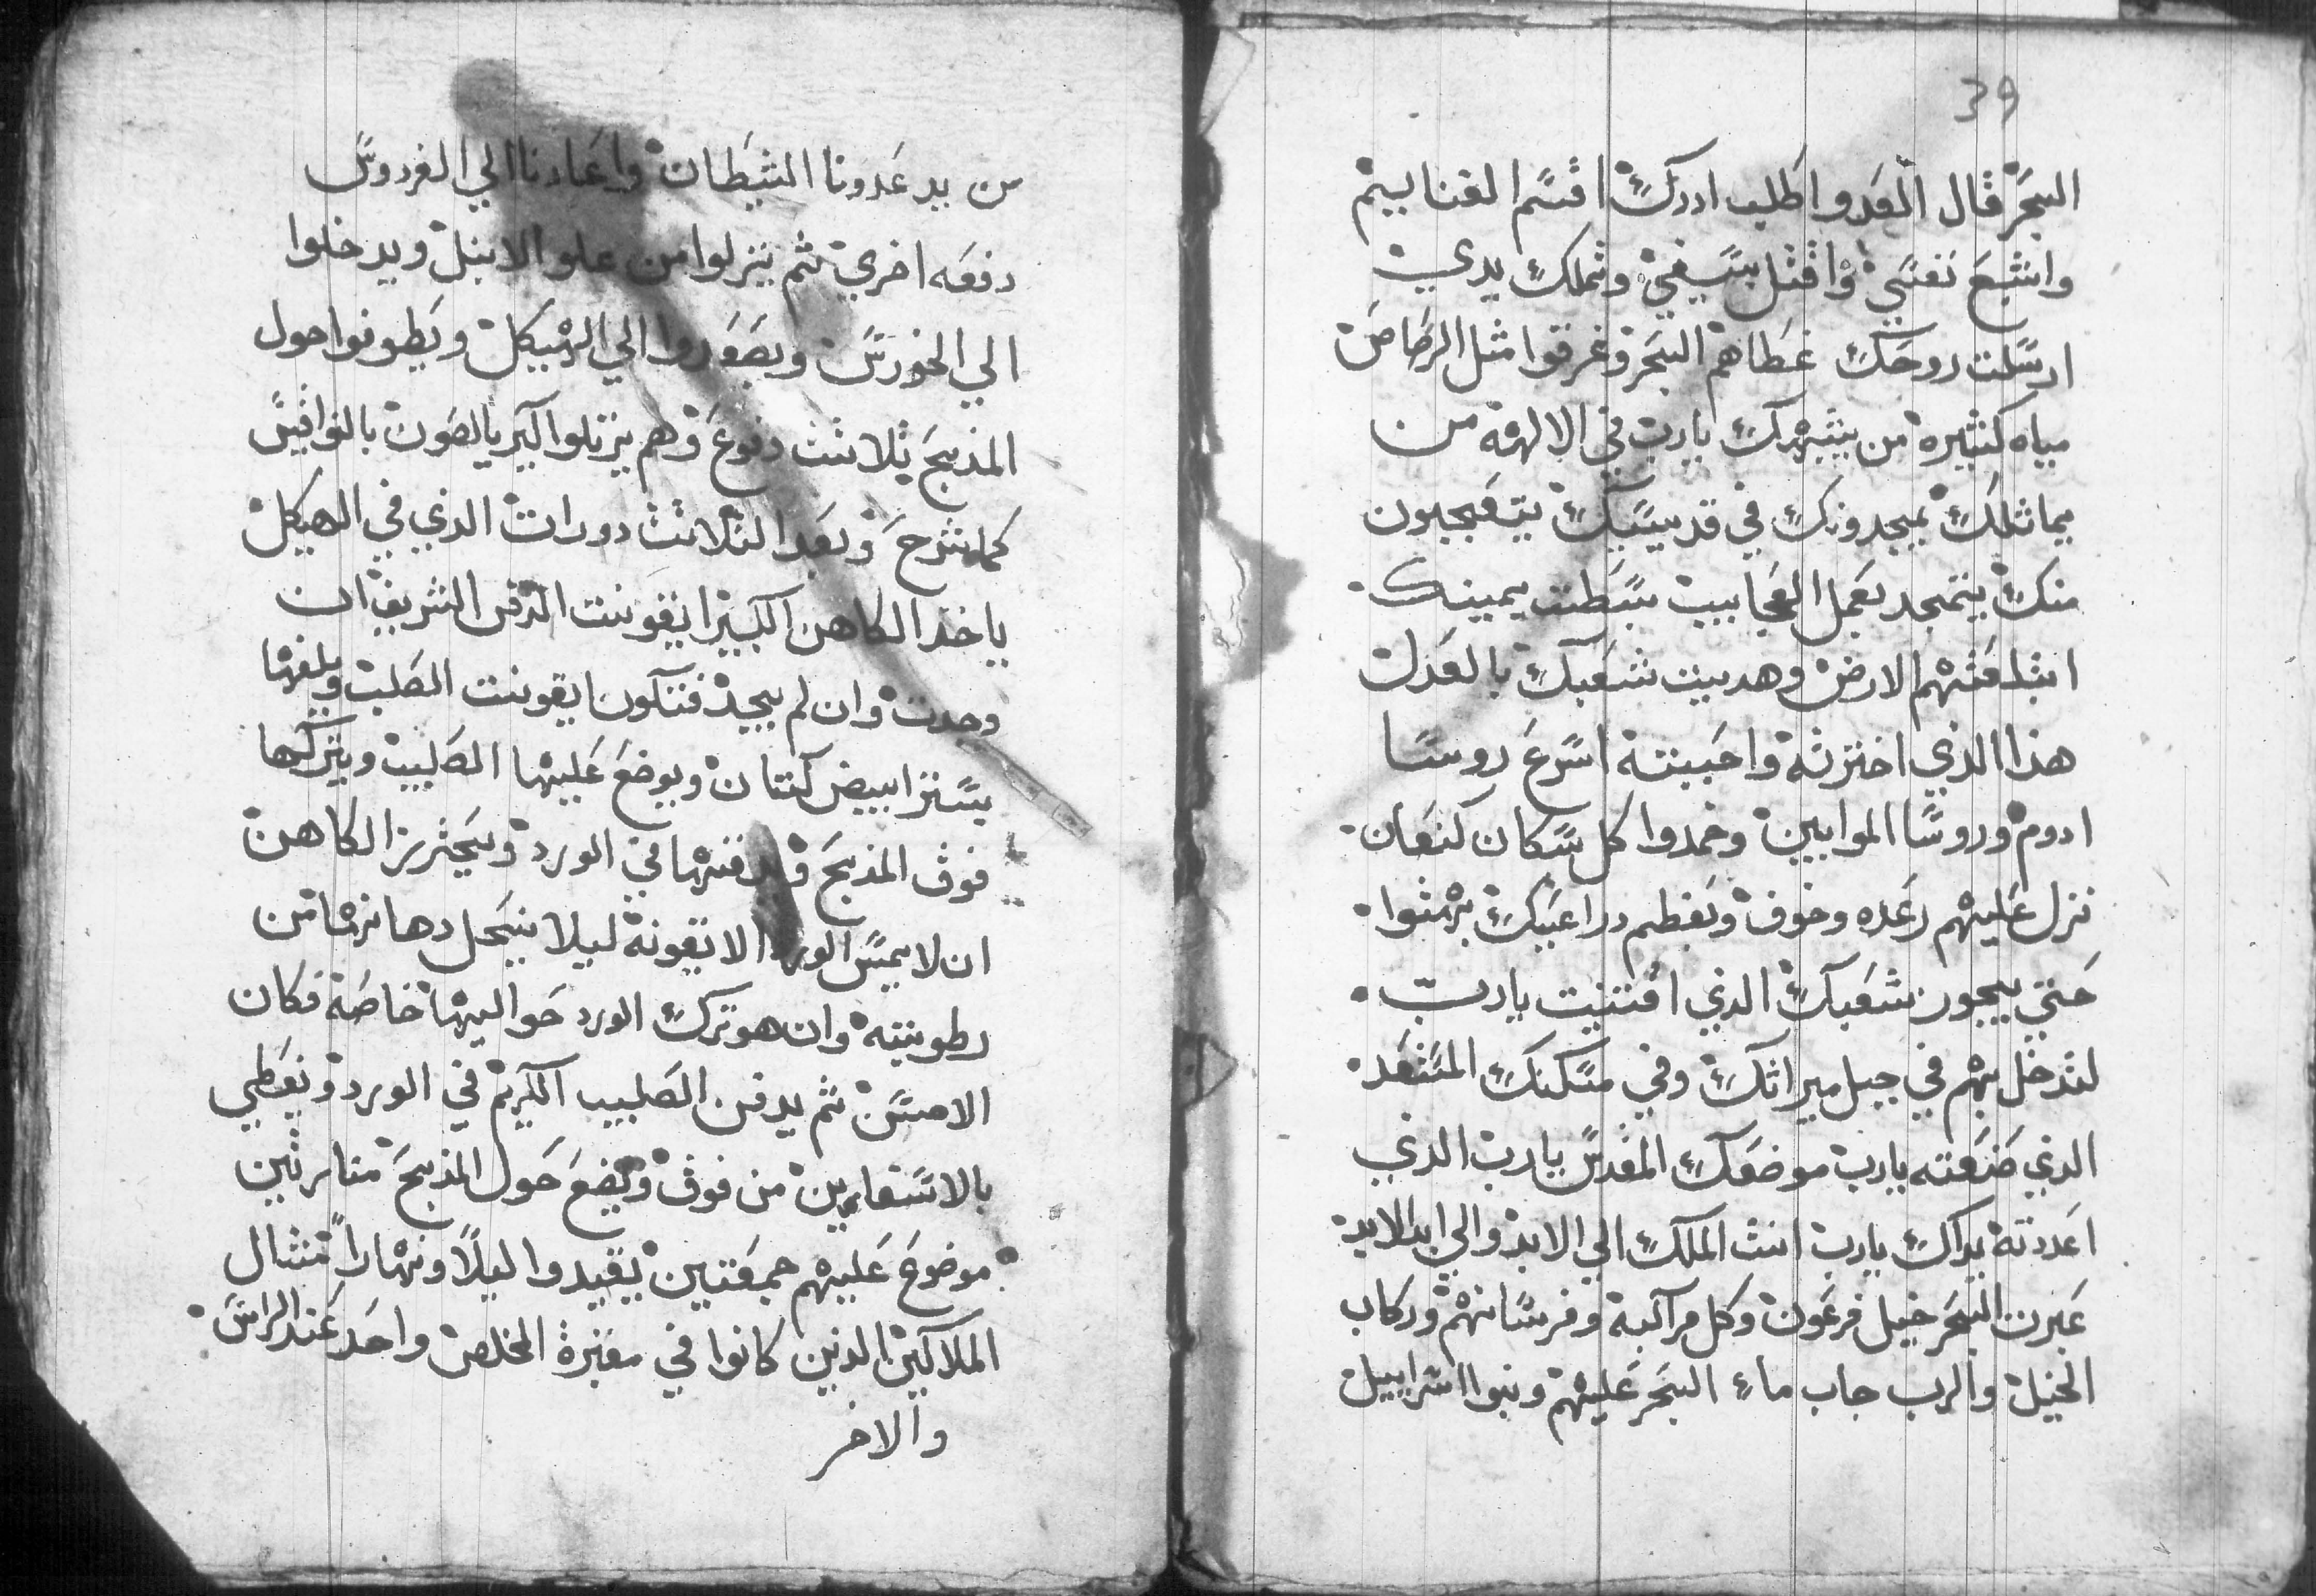 39
البحر قال العدو اطلب ادرك اقسم الغنايم
واشبع نفسي واقتل بسيفي وتملك يدي
ارسلت روحك غطاهم البحر وغرقوا مثل الرصاص
مياه كثيره من يشبهك يارب في الالهة من
يماثلك يمجدونك في قديسيك يتعجبون
منك يتمجد بعمل العجايب بسطت يمينك
ابتلعتهم الارض وهديت شعبك بالعدل
هذا الذي اخترته واحببته اسرع روسا
ادوم وروسا الموابين وخمدوا كل سكان كنعان
نزل عليهم رعده وخوف وبعظم دراعيك بهتوا
حتي يجوز شعبك الذي اقتنيت يارب
لتدخل بهم في جبل ميراتك وفي مسكنك المستعد
الذي صنعته يارب موضعك المقدس يارب الذي
اعددته يداك يارب انت الملك الي الابد والي ابد الابد
عبرت البحر خيل فرعون وكل مراكبه وفرسانهم وركاب
الخيل والرب جاب ماء البحر عليهم وبنوا اسراييل
من يد عدونا الشيطان واعادنا الي الفردوس
دفعه اخري ثم ينزلوا من علو الانبل ويدخلوا
الي الخورس ويصعدوا الي الهيكل ويطوفوا حول
المذبح ثلاثت دفوع وهم يرتلوا كيرياليصون بالنواقيس
كما شرح وبعد الثلاثت دورات الذي في الهيكل
ياخذ الكاهن الكبير ايقونت الدفن الشريف ان
وجدت وان لم يجد فتكون ايقونت الصلب ويلفها
بستر ابيض كتان ويوضع عليها الصليب ويتركها
فوق المذبح ويدفنها في الورد ويحترز الكاهن
ان لا يمس الورد الايقونة ليلا ينحل دهانها من
رطوبته وان هو ترك الورد حواليها خاصة فكان
الاحسن ثم يدفن الصليب الكريم في الورد ويغطي
بالابسفارين من فوق ويضع حول المذبح منارتين
موضوع عليهم شمعتين يقيدوا ليلاً ونهاراً مثال
الملاكين الذين كانوا في مقبرة المخلص واحد عند الراس
والاخر